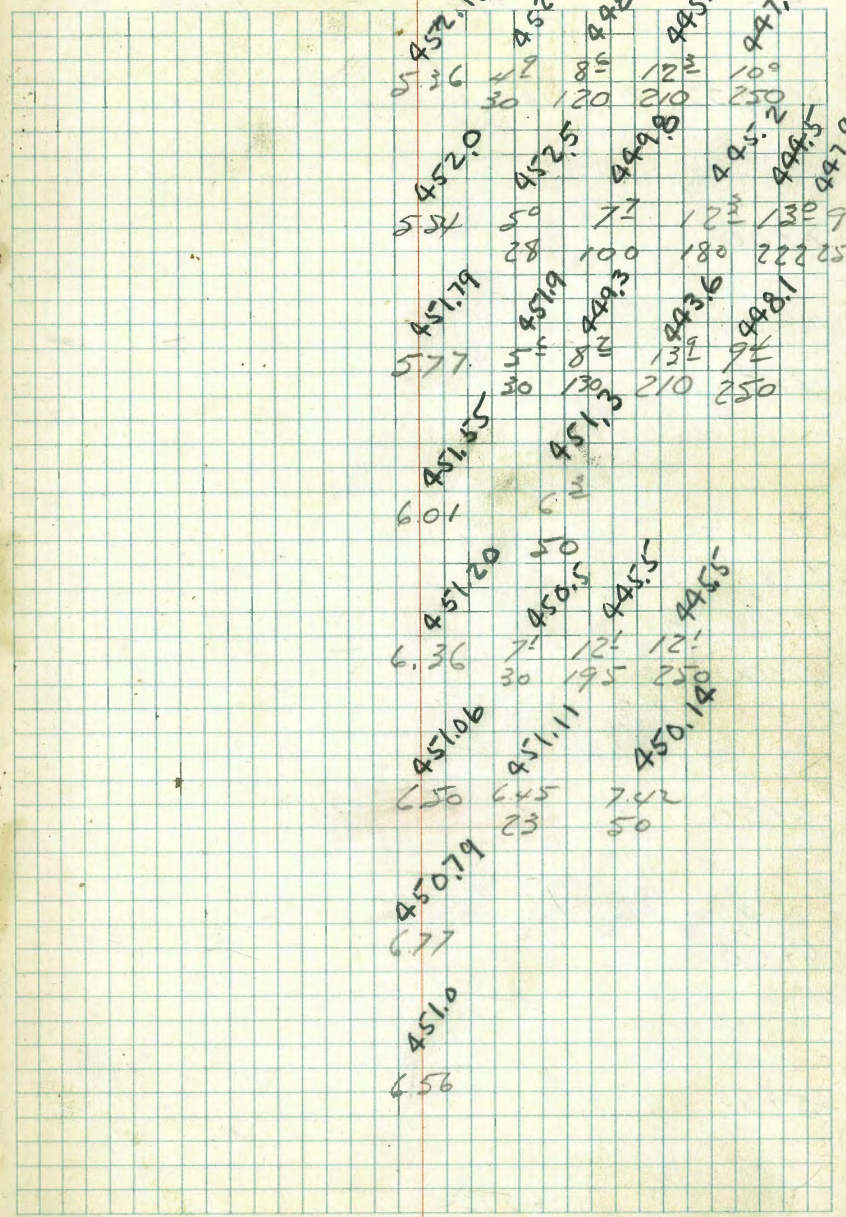 5.36 4⁹ 8⁶ 12³ 10⁰
30 120 210 250
452.0 452.5 449.8 445.2 444.5
5.54 5⁰ 7⁷ 12³ 13⁰
28 100 180 222
451.79 451.9 449.3 443.6 448.1
5.77 5⁶ 8² 13⁹ 9⁴
30 130 210 250
451.55 451.3
6.01 6³
50
451.20 450.5 445.5 445.5
6.36 7¹ 12¹ 12¹
30 195 250
451.06 451.11 450.14
6.50 6.45 7.42
23 50
450.79
6.77
451.0
6.56